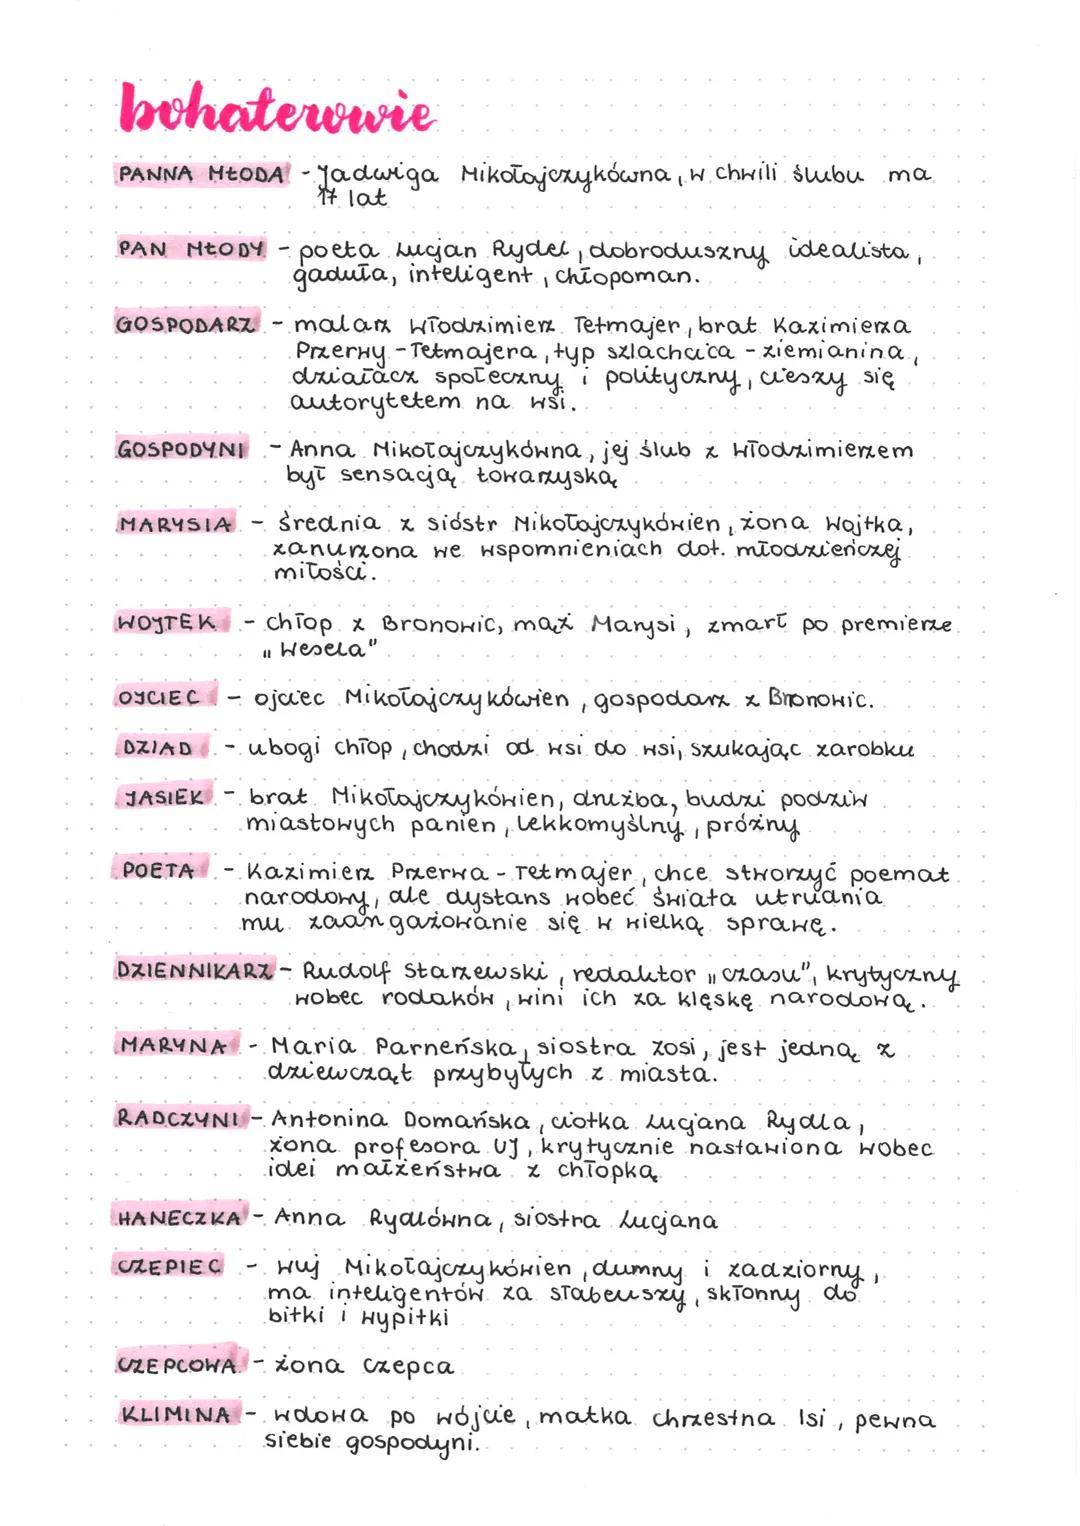 bohaterowie
PANNA MŁODA - Jadwiga Mikołajczykówna, w chwili ślubu ma
17 lat
PAN MŁODY - poeta Lucjan Rydel, dobroduszny idealista,
gaduła, inteligent, chłopoman.
GOSPODARZ - malarz Włodzimierz Tetmajer, brat Kazimierza
Przerwy-Tetmajera, typ szlachcica - ziemianina,
działacz społeczny i polityczny, cieszy się
autorytetem na wsi.
GOSPODYNI - Anna Mikołajczykówna, jej ślub z Włodzimierzem
był sensacją towarzyską
MARYSIA - średnia z sióstr Mikołajczykówien, żona Wojtka,
zanurzona we wspomnieniach dot. młodzieńczej
miłości.
WOJTEK - chłop z Bronowic, mąż Marysi, zmarł po premierze
„Wesela"
OJCIEC - ojciec Mikołajczykówien, gospodarz z Bronowic.
DZIAD - ubogi chłop, chodzi od wsi do wsi, szukając zarobku
JASIEK - brat Mikołajczykówien, drużba, budzi podziw
miastowych panien, lekkomyślny, próżny
POETA - Kazimierz Przerwa - Tetmajer, chce stworzyć poemat
narodowy, ale dystans wobec świata utrudnia
mu zaangażowanie się w wielką sprawę.
DZIENNIKARZ - Rudolf Starzewski, redaktor „czasu", krytyczny
wobec rodaków, wini ich za klęskę narodową.
MARYNA - Maria Parneńska, siostra Zosi, jest jedną z
dziewcząt przybyłych z miasta.
RADCZYNI - Antonina Domańska, ciotka Lucjana Rydla,
żona profesora UJ, krytycznie nastawiona wobec
idei małżeństwa z chłopką
HANECZKA - Anna Rydlówna, siostra Lucjana
CZEPIEC - wuj Mikołajczykówien, dumny i zadziorny,
ma inteligentów za słabeuszy, skłonny do
bitki i wypitki
CZEPCOWA - żona Czepca
KLIMINA - wdowa po wójcie, matka chrzestna Isi, pewna
siebie gospodyni.